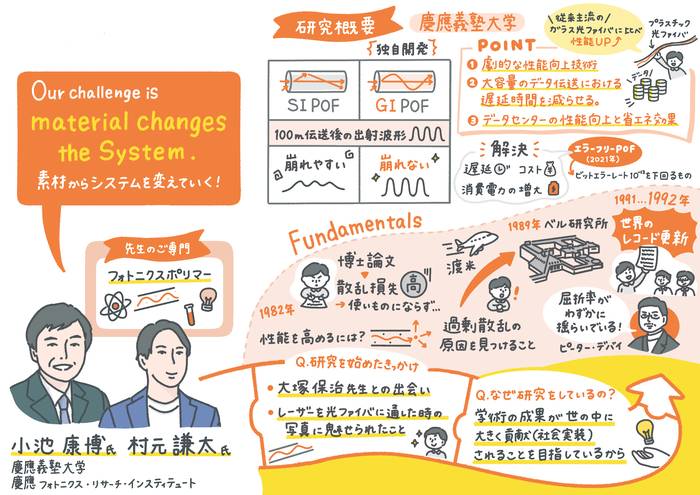 Our challenge is
material changes
the System.
素材からシステムを変えていく!
先生のご専門
フォトニクスポリマー
小池 康博氏 村元 謙太氏
慶應義塾大学
慶應フォトニクス・リサーチ・インスティテュート
研究概要
慶應義塾大学
独自開発
SI POF
GI POF
100m伝送後の出射波形
崩れやすい
崩れない
従来主流の
ガラス光ファイバに比べ
性能UP
プラスチック
光ファイバ
データ
POINT
1 劇的な性能向上技術
2 大容量のデータ伝送における
遅延時間を減らせる。
3 データセンターの性能向上と省エネ効果
解決
遅延 コスト
消費電力の増大
エラーフリーPOF
(2021年)
Fundamentals
1982年
博士論文
散乱損失 高
→使いものにならず…
性能を高めるには?
渡米
過剰散乱の
原因を見つけること
1989年 ベル研究所
1991…1992年
世界の
レコード更新
屈折率が
わずかに
揺らいでいる!
ピーター・デバイ
Q.研究を始めたきっかけ
・大塚 保治先生との出会い
・レーザーを光ファイバに通した時の
写真に魅せられたこと
Q.なぜ研究をしているの?
学術の成果が世の中に
大きく貢献(社会実装)
されることを目指しているから